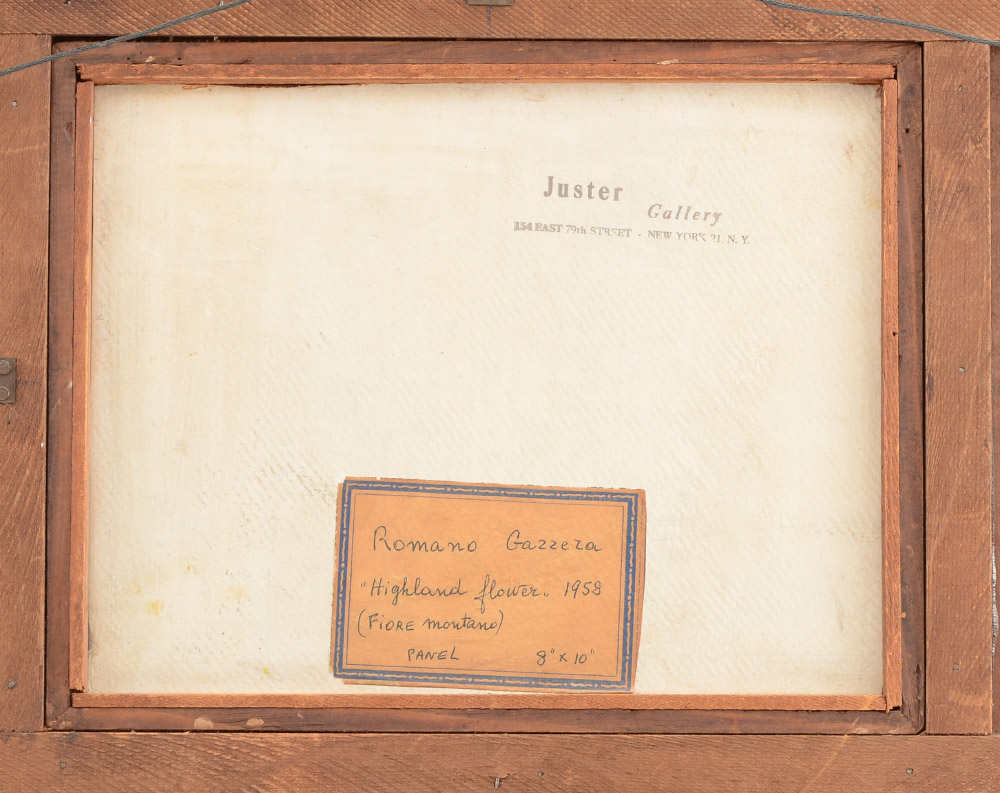 Juster
Gallery
154 EAST 79th STREET - NEW YORK 21, N. Y.
Romano Gazzera
"Highland flower" 1958
(FIORE montano)
PANEL 8" x 10"